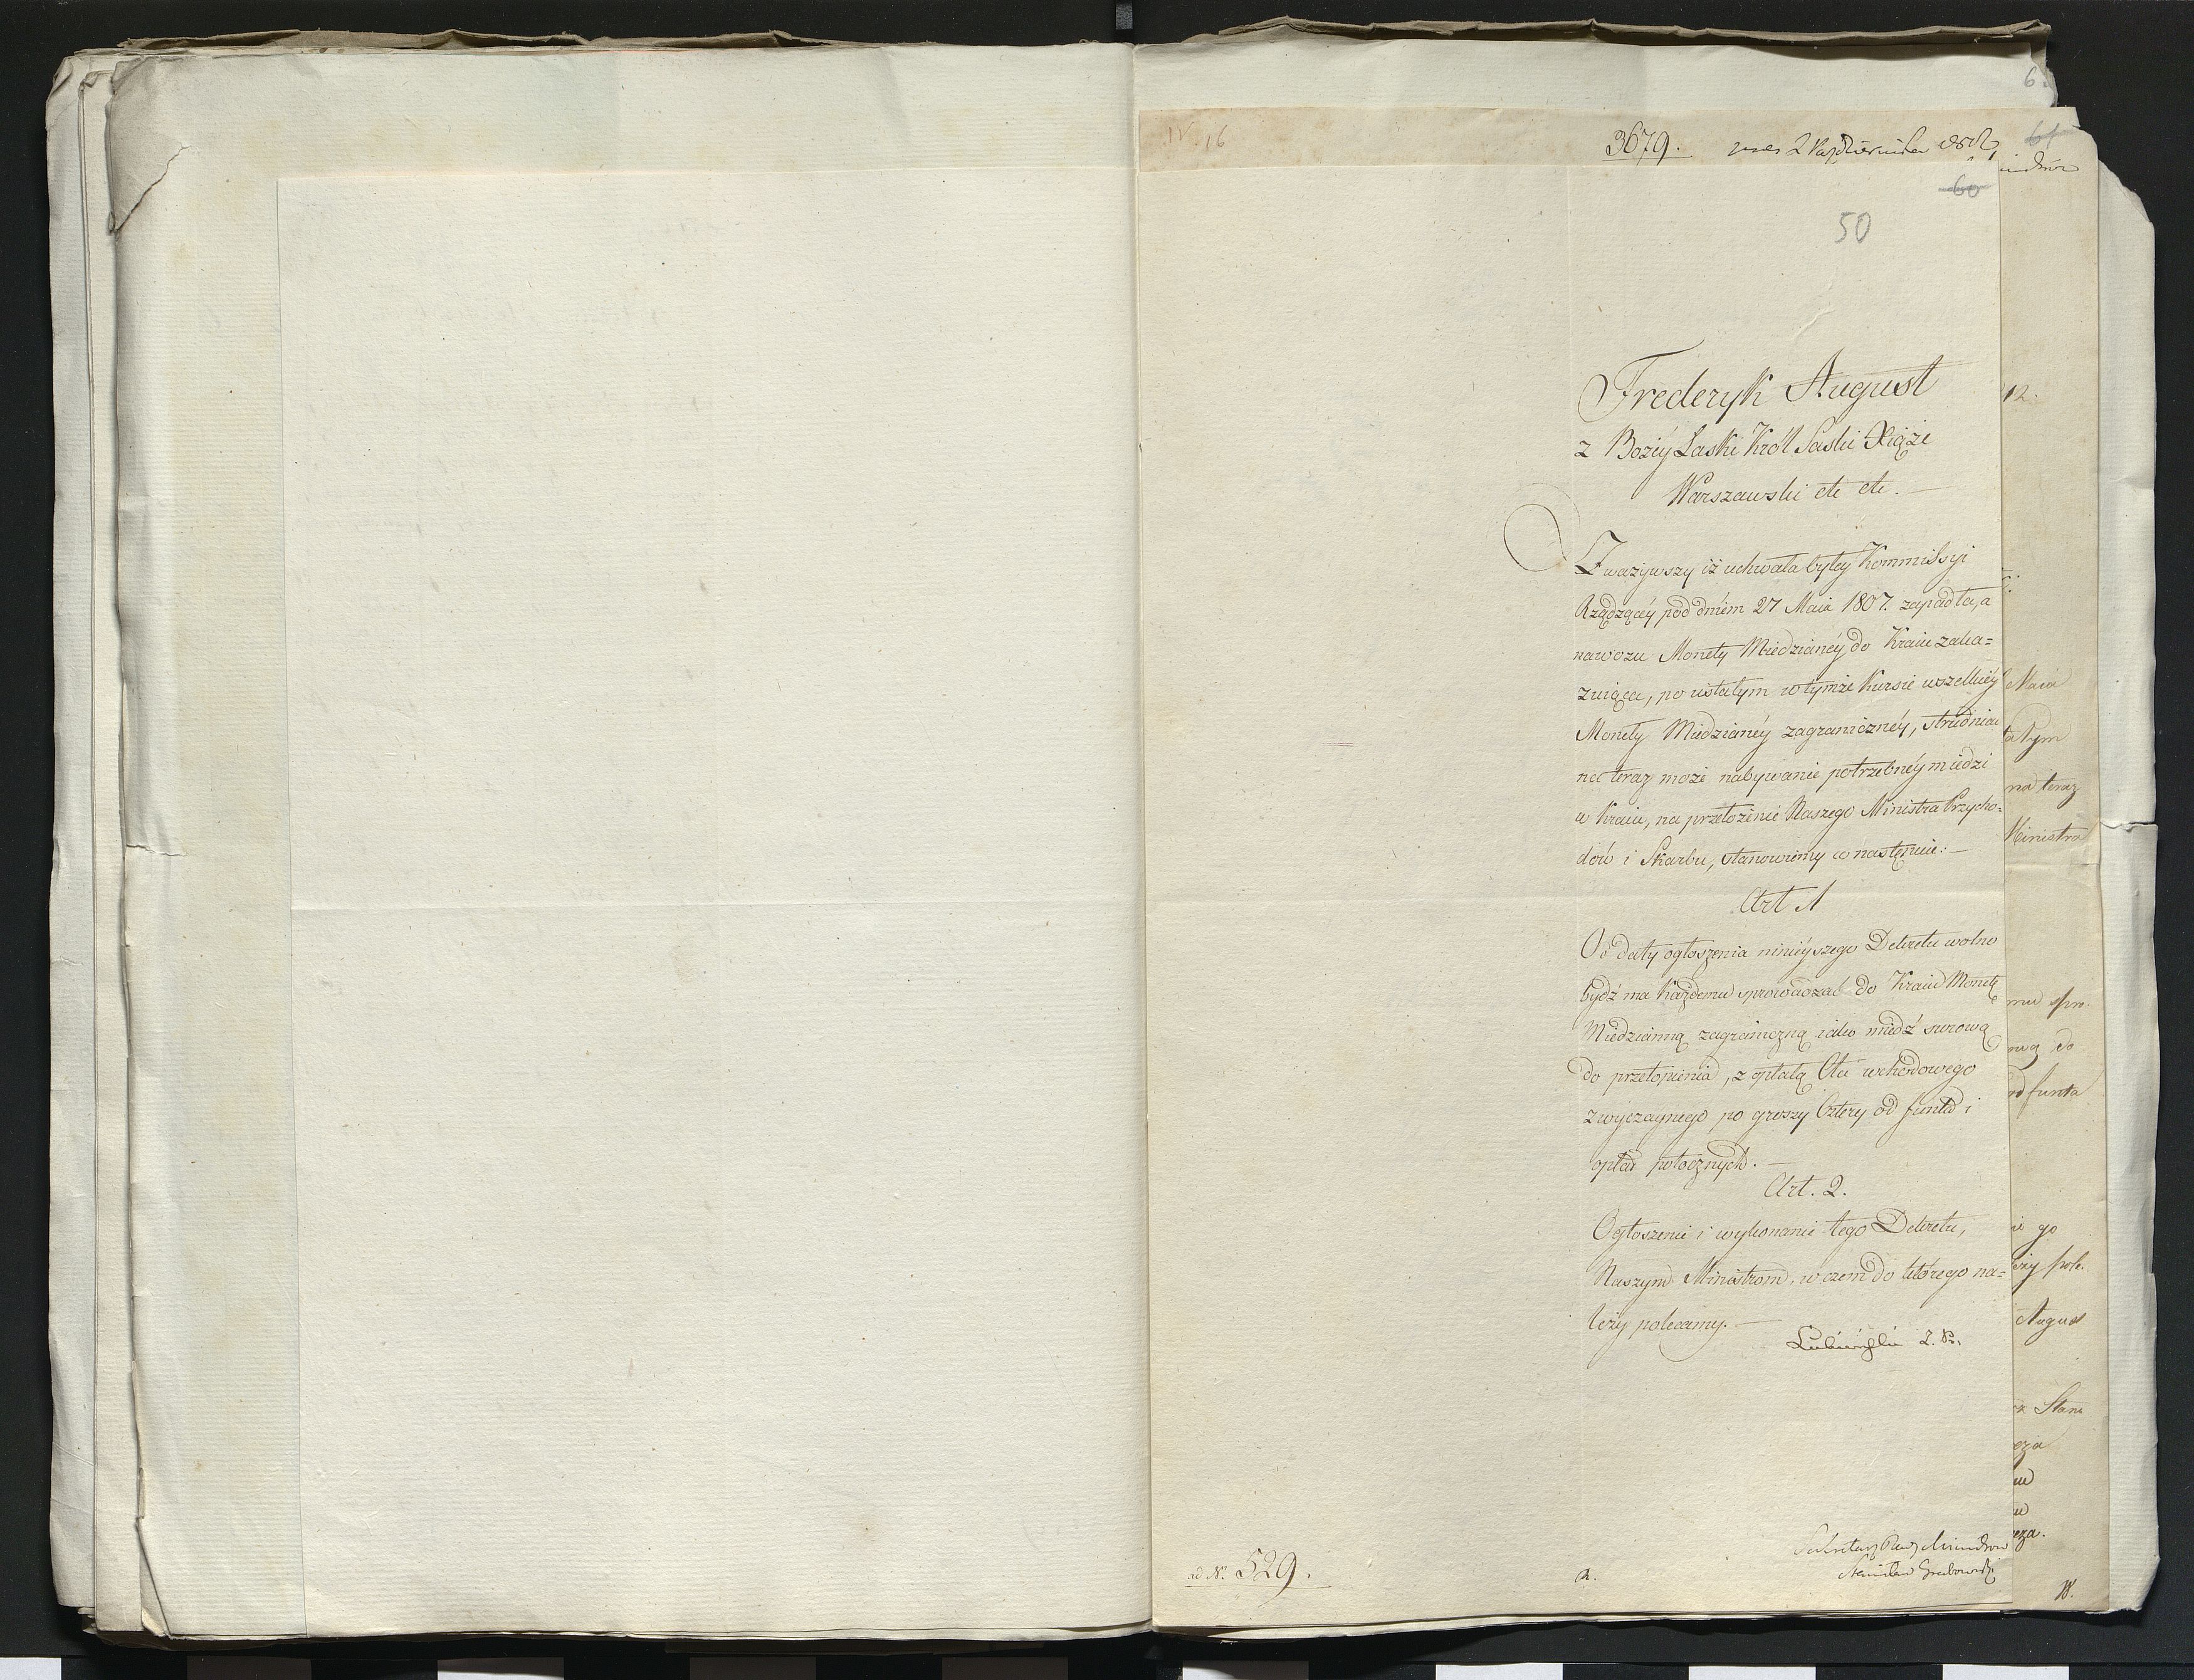 IV. 16
3679. pres 2 Października
6.
61
60
50
Frederyk August
z Bożéy Łaski Król Saski Xiąże
Warszawski etc etc. —
Zważywszy iż uchwała byłey Kommissyi
Rządzącéy pod dniem 27 Maia 1807. zapadła, a
nawozu Monety Miedzianéy do Kraiu zaka=
zuiąca, po ustałym w tymże kursie wszelkiéy
Monety Miedzianéy zagranicznéy, utrudniać
na teraz może nabywanie potrzebnéy miedzi
w Kraiu, na przełożenie Naszego Ministra Przycho=
dów i Skarbu, stanowiemy co następuie: —
Art 1
Od daty ogłoszenia ninieyszego Dekretu wolno
bydź ma każdemu sprowadzać do Kraiu Monetę
Miedzianną zagraniczną iako miedź surową
do przetopienia, z opłatą Cła wchodowego
zwyczaynego po groszy Cztery od funta i
opłat potocznych. —
Art. 2.
Ogłoszenie i wykonanie tego Dekretu,
Naszym Ministrom, w czem do którego na=
leży polecamy. —
Lubieński
Sekretarz Rady Ministrów
Stanisław Grabowski
ad N. 529.
12.
Maia
tałym
na teraz
Ministra
mu spro.
wą do
od funta
ie go
eży pole.
August
rz Stanu
eza.